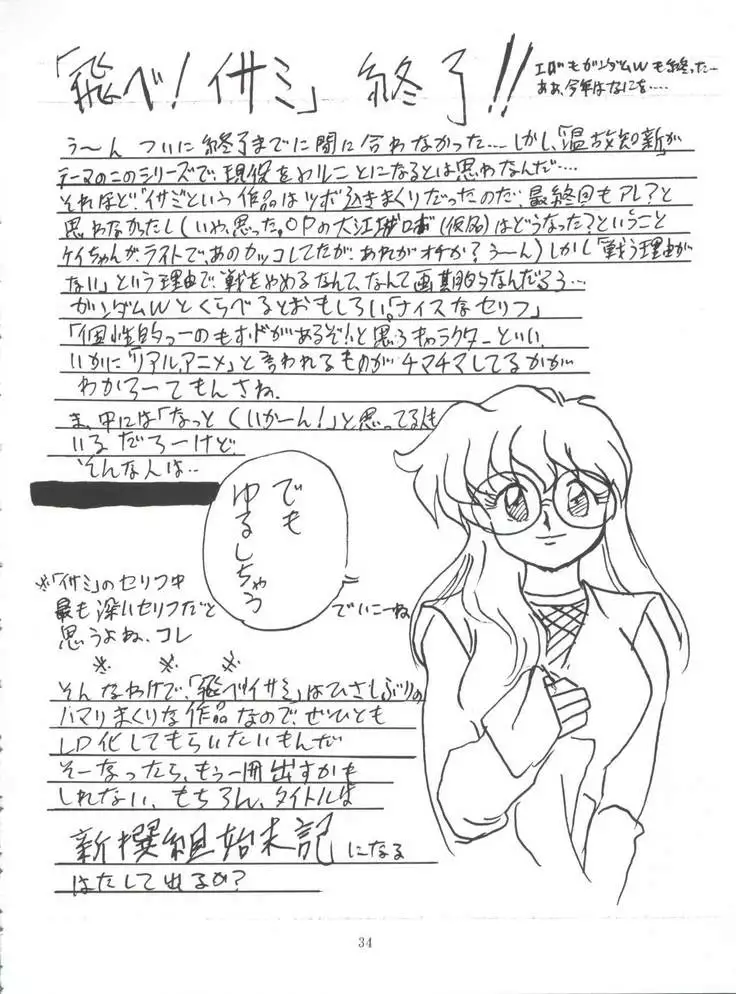 「飛べ!イサミ」終了!!
エヴァもガンダムWも終った…
ああ、今年はなにを……
う〜ん ついに終了までに間に合わなかった…しかし、「温故知新」が
テーマのこのシリーズで、現役をヤルことになるとは思わなんだ…
それほど「イサミ」という作品はツボ突きまくりだったのだ、最終回もアレ?と
思わなかったし(いや、思った。OPの大江城ロボ(仮名)はどうなった?ということ
ケイちゃんが、ラストで、あのカッコしてたが、あれがオチか?う〜ん)しかし「戦う理由が
ない」という理由で、戦をやめるなんて、なんて画期的なんだろう…
ガンダムWとくらべるとおもしろい。「ナイスなセリフ」
「個性的っつーのもホドがあるぞ!」と思うキャラクターといい
いかに「リアルアニメ」と言われるものがチマチマしてるかが
わかろーてもんさね。
ま、中には「なっとくいかーん!」と思ってる人も
いるだろーけど
そんな人は…
でも
ゆるしちゃう
でいこーね
※「イサミ」のセリフ中
最も深いセリフだと
思うよね、コレ
※ ※ ※
そんなわけで、「飛べイサミ」はひさしぶりの
ハマリまくりな作品なので、ぜひとも
LD化してもらいたいもんだ
そーなったら、もう一冊出すかも
しれない、もちろん、タイトルは
新撰組始末記になる
はたして出るか?
34